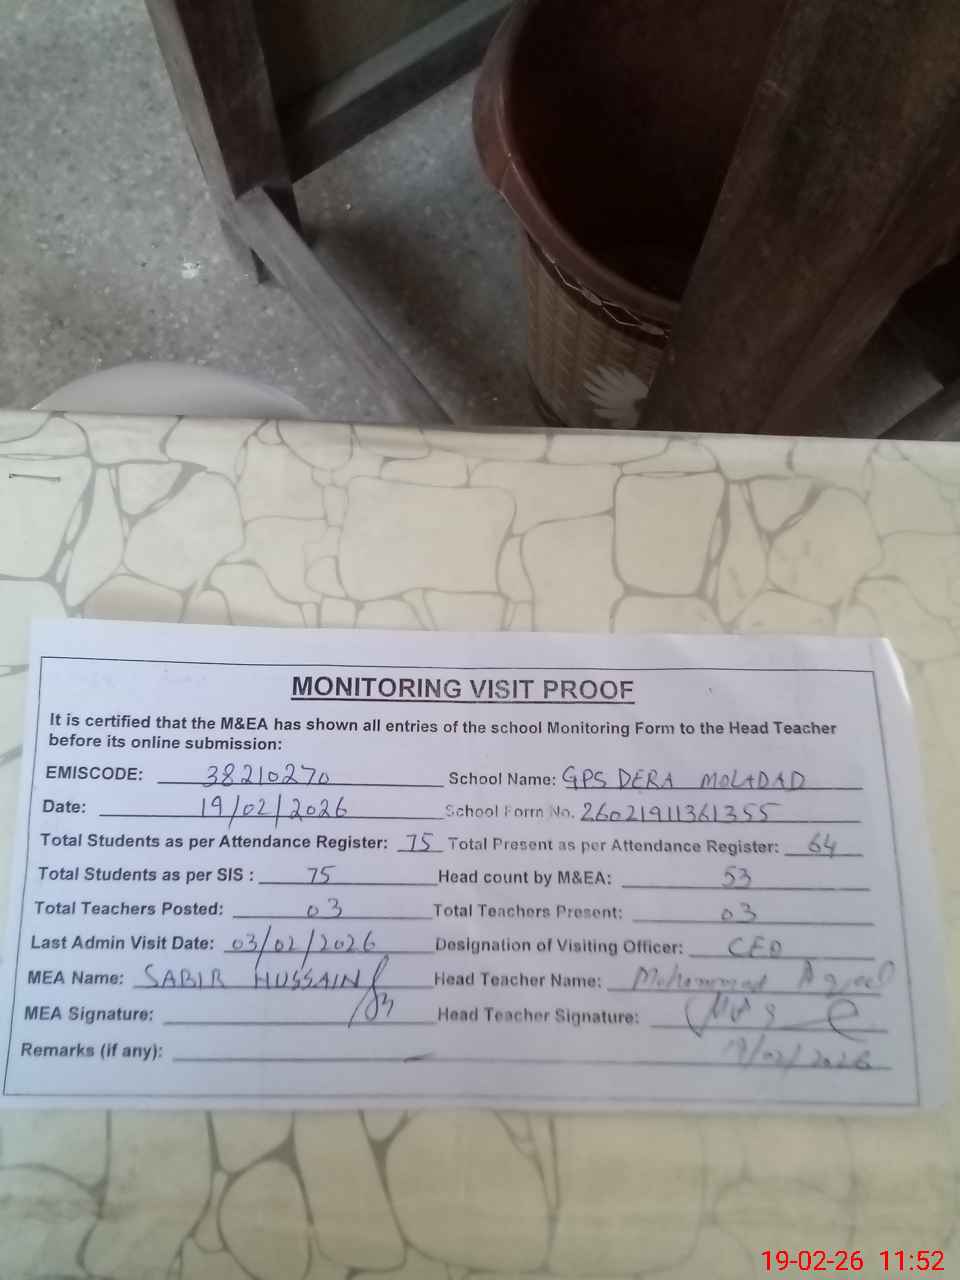 MONITORING VISIT PROOF
It is certified that the M&EA has shown all entries of the school Monitoring Form to the Head Teacher
before its online submission:
EMISCODE: 38210270 School Name: GPS DERA MOLADAD
Date: 19/02/2026 School Form No. 26021911361355
Total Students as per Attendance Register: 75 Total Present as per Attendance Register: 64
Total Students as per SIS : 75 Head count by M&EA: 53
Total Teachers Posted: 03 Total Teachers Present: 03
Last Admin Visit Date: 03/02/2026 Designation of Visiting Officer: CEO
MEA Name: SABIR HUSSAIN Head Teacher Name: Mohammad
MEA Signature: Head Teacher Signature:
Remarks (if any): 19/02/2026
19-02-26 11:52